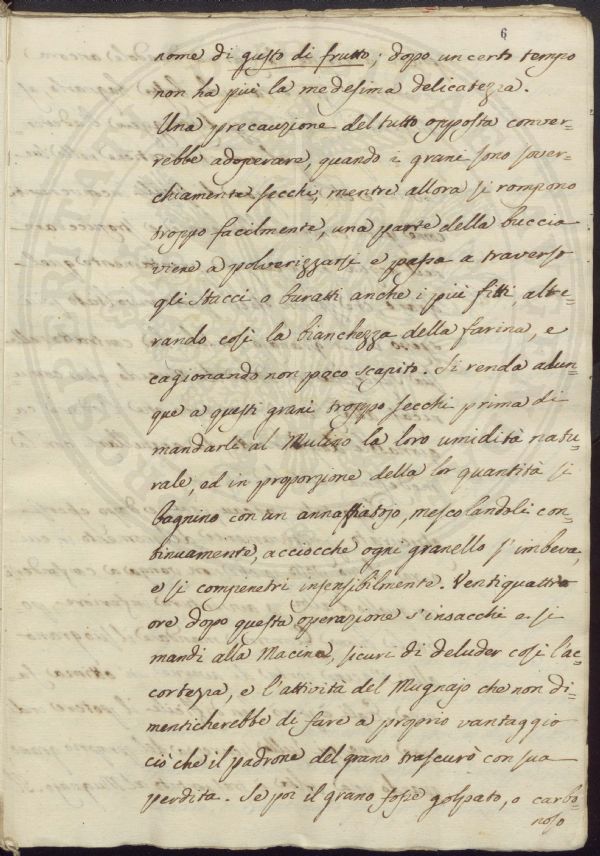 6
nome di gusto di frutto; dopo un certo tempo
non ha più la medesima delicatezza.
Una precauzione del tutto opposta conver-
rebbe adoperare, quando i grani sono sover-
chiamente secchi, mentre allora si rompono
troppo facilmente, una parte della buccia
viene a polverizzarsi e passa a traverso
gli stacci o buratti anche i più fitti, alte-
rando così la bianchezza della farina, e
cagionando non poco scapito. Si renda adun-
que a questi grani troppo secchi prima di
mandarli al Mulino la loro umidità natu-
rale, ed in proporzione della lor quantità si
bagnino con un annaffiatojo, mescolandoli con-
tinuamente, acciocche ogni granello s'imbeva,
e si compenetri insensibilmente. Ventiquattro
ore dopo questa operazione s'insacchi e si
mandi alla Macine, sicuri di deluder così l'ac-
cortezza, e l'attività del Mugnajo che non di-
menticherebbe di fare a proprio vantaggio
ciò che il padrone del grano trascurò con sua
perdita. Se poi il grano fosse golpato, o carbo-
noso